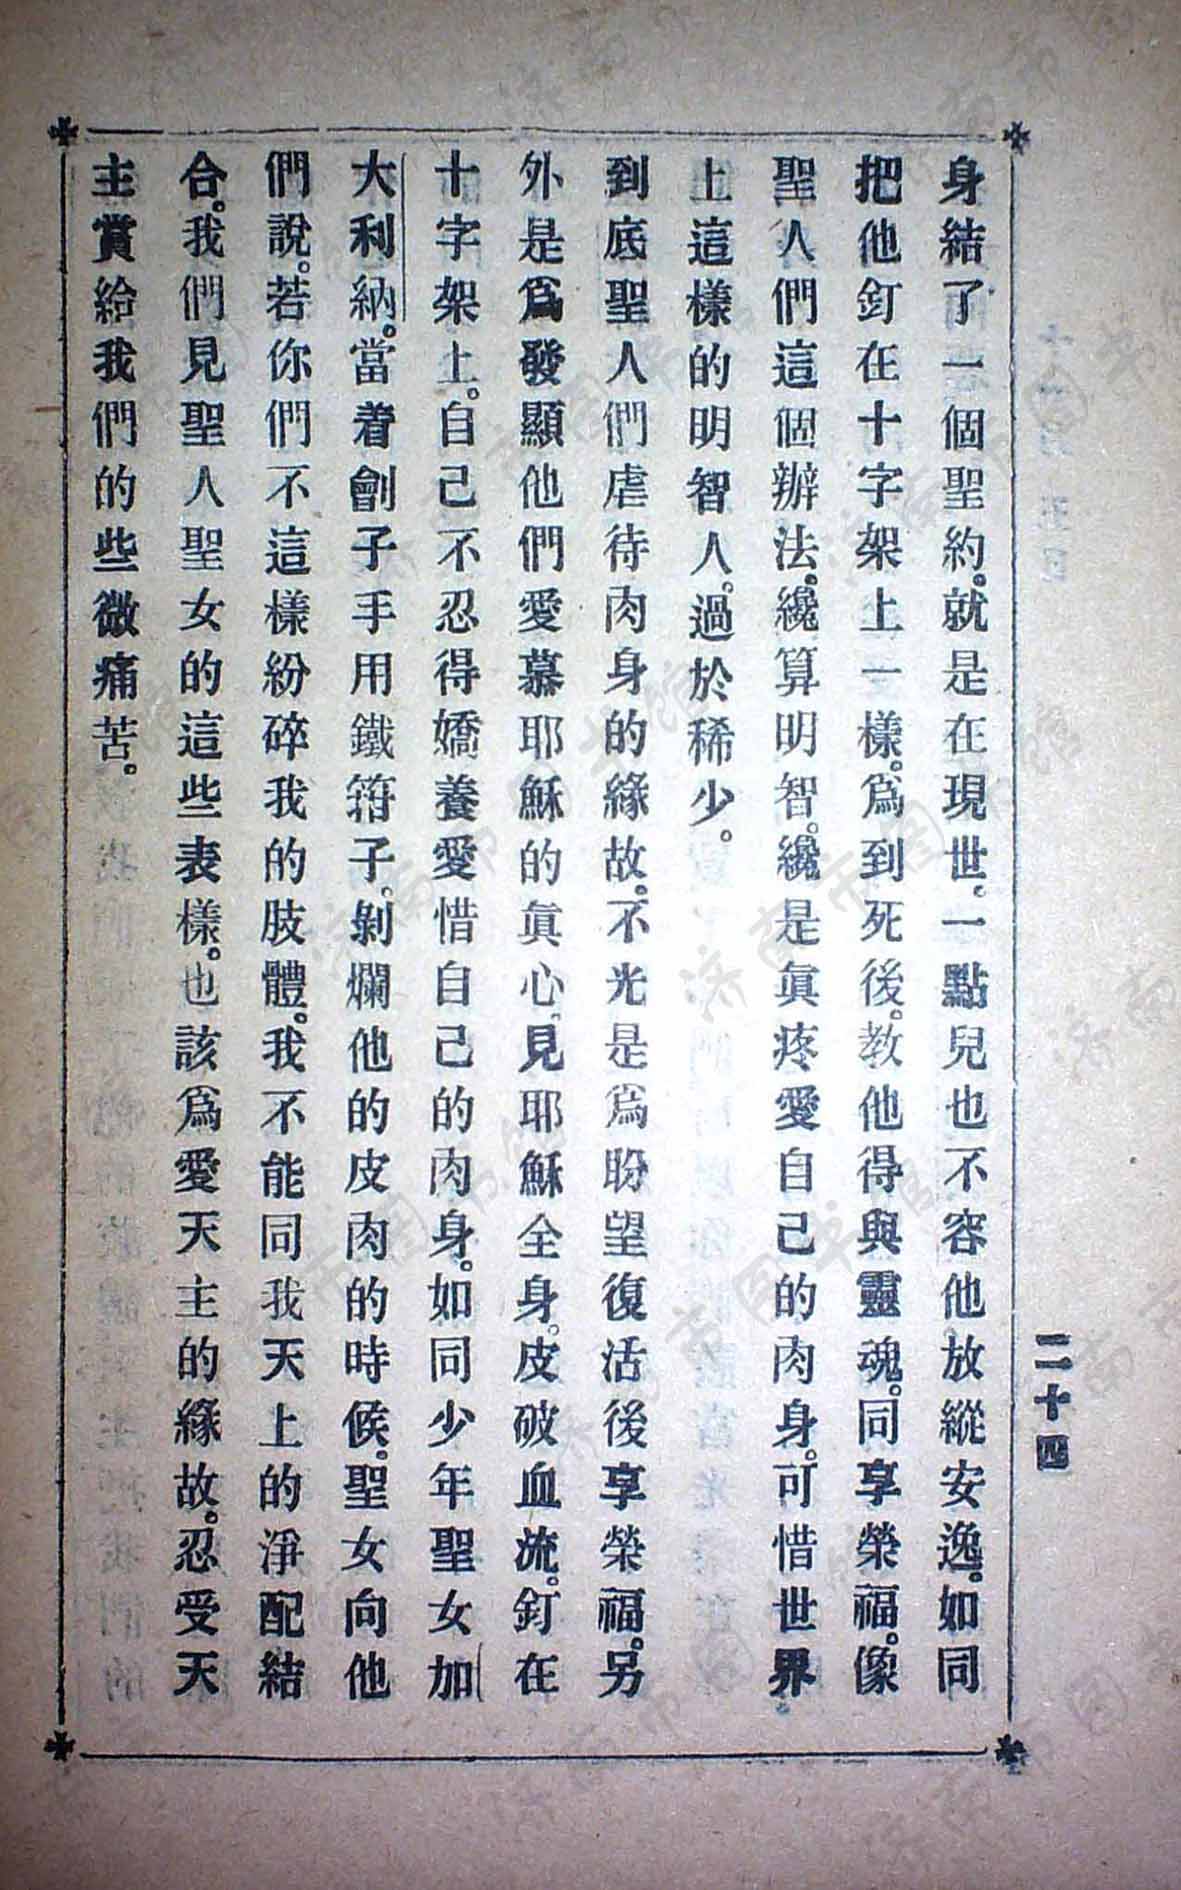 身結了一個聖約。就是在現世。一點兒也不容他放縱安逸。如同
把他釘在十字架上一樣。爲到死後。教他得與靈魂。同享榮福。像
聖人們這個辦法。纔算明智。纔是眞疼愛自己的肉身。可惜世界。
上這樣的明智人。過於稀少。
到底聖人們虐待肉身的緣故。不光是爲盼望復活後享榮福。另
外是爲發顯他們愛慕耶穌的眞心。見耶穌全身。皮破血流。釘在
十字架上。自己不忍得嬌養愛惜自己的肉身。如同少年聖女加
大利納。當着劊子手用鐵箝子。剝爛他的皮肉的時候。聖女向他
們說。若你們不這樣紛碎我的肢體。我不能同我天上的淨配結
合。我們見聖人聖女的這些表樣。也該爲愛天主的緣故。忍受天
主賞給我們的些微痛苦。
二十四
济南市图书馆